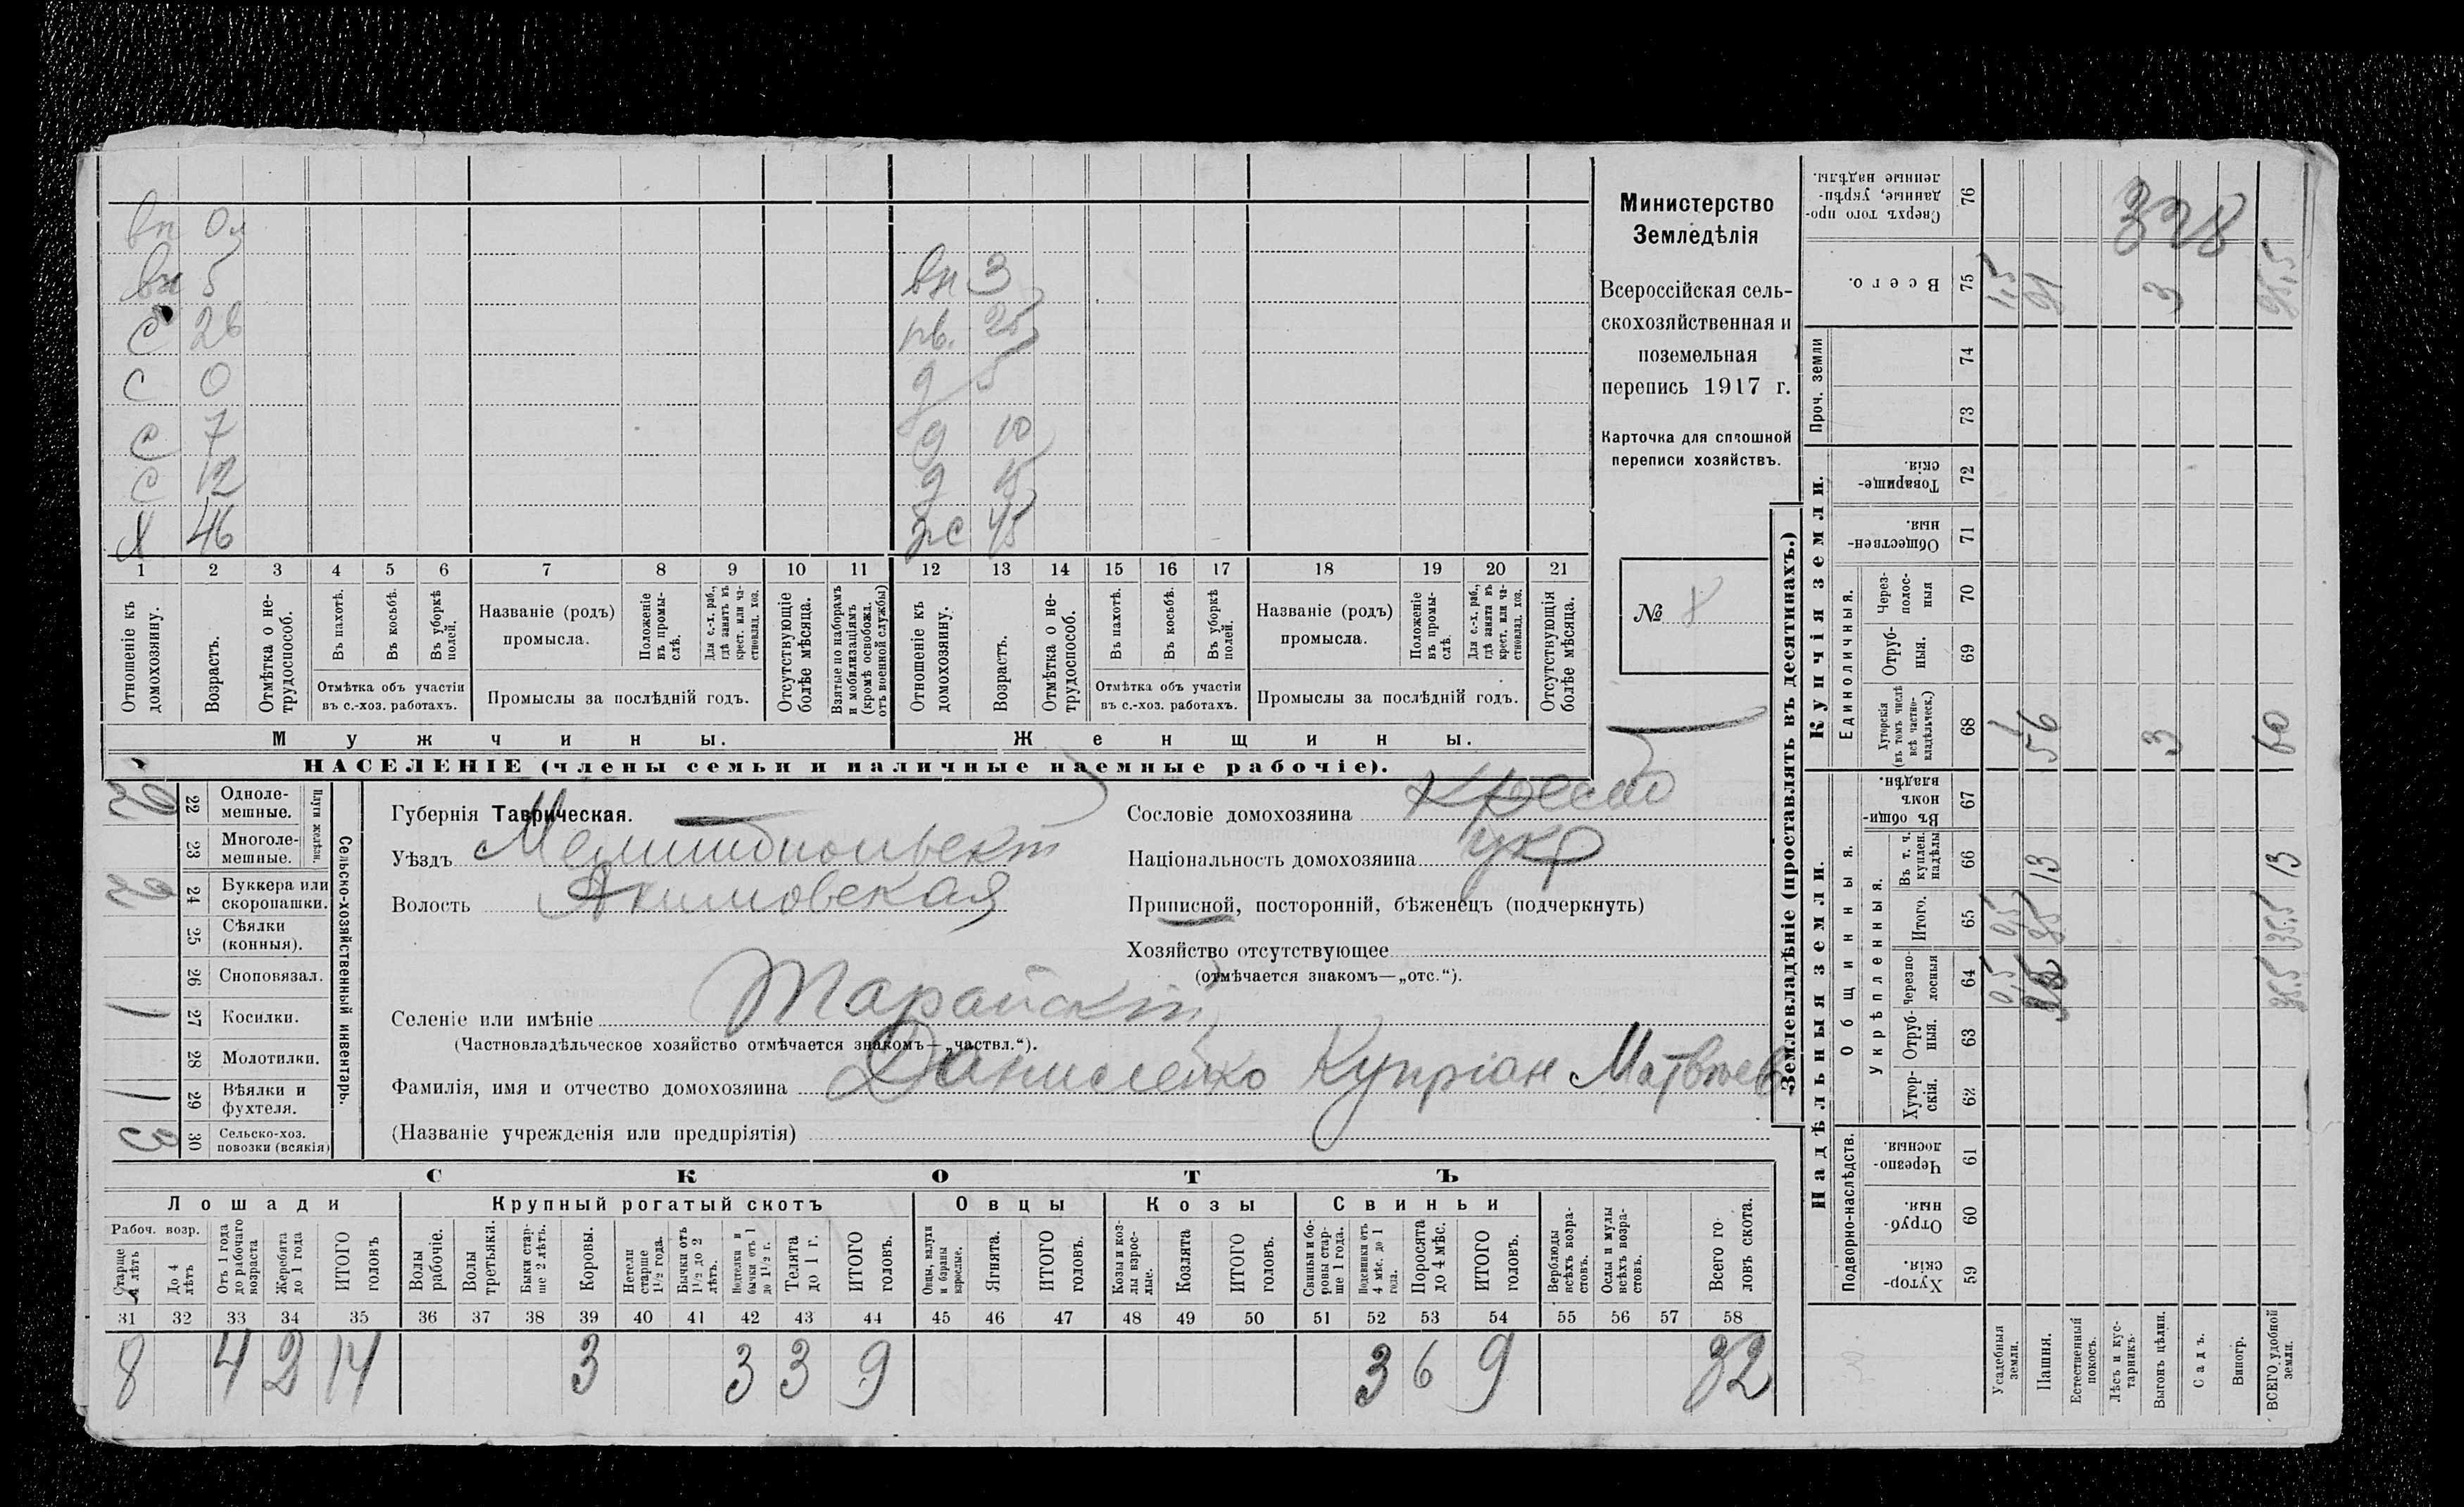 вн 0
вн 5 вн 3
с 26 нв. 25
с 0 д 5
с 7 д 10
с 12 д 15
х 46 жс 45
1 2 3 4 5 6 7 8 9 10 11 12 13 14 15 16 17 18 19 20 21
Отношеніе къ домохозяину.
Возрастъ.
Отмѣтка о нетрудоспособ.
Въ пахотѣ.
Въ косьбѣ.
Въ уборкѣ полей.
Отмѣтка объ участіи въ с.-хоз. работахъ.
Названіе (родъ) промысла.
Положеніе въ промыслѣ.
Для с.-х. раб., гдѣ занятъ въ крест. или частновлад. хоз.
Промыслы за послѣдній годъ.
Отсутствующіе болѣе мѣсяца.
Взятые по наборамъ и мобилизаціямъ (кромѣ освобожд. отъ военной службы)
Отношеніе къ домохозяину.
Возрастъ.
Отмѣтка о нетрудоспособ.
Въ пахотѣ.
Въ косьбѣ.
Въ уборкѣ полей.
Отмѣтка объ участіи въ с.-хоз. работахъ.
Названіе (родъ) промысла.
Положеніе въ промыслѣ.
Для с.-х. раб., гдѣ занята въ крест. или частновлад. хоз.
Промыслы за послѣдній годъ.
Отсутствующія болѣе мѣсяца.
Мужчины. Женщины.
НАСЕЛЕНІЕ (члены семьи и наличные наемные рабочіе).
Министерство
Земледѣлія
Всероссійская сель-
скохозяйственная и
поземельная
перепись 1917 г.
Карточка для сплошной
переписи хозяйствъ.
№ 8
Сельско-хозяйственный инвентарь.
Плуги желѣзн.
2 22 Одноле-мешные.
23 Многоле-мешные.
2 24 Буккера или скоропашки.
25 Сѣялки (конныя).
26 Сноповязал.
1 27 Косилки.
28 Молотилки.
1 29 Вѣялки и фухтеля.
3 30 Сельско-хоз. повозки (всякія)
Губернія Таврическая.
Уѣздъ Мелитопольскій
Волость Акимовская
Сословіе домохозяина Крест
Національность домохозяина укр
Приписной, посторонній, бѣженецъ (подчеркнуть)
Хозяйство отсутствующее
(отмѣчается знакомъ—„отс.“).
Селеніе или имѣніе
(Частновладѣльческое хозяйство отмѣчается знакомъ—„частвл.“).
Фамилія, имя и отчество домохозяина Данилейко Купріан Матвѣев
(Названіе учрежденія или предпріятія)
СКОТЪ
Лошади Крупный рогатый скотъ Овцы Козы Свиньи
Рабоч. возр.
Старше 4 лѣтъ
До 4 лѣтъ
Отъ 1 года до рабочаго возраста
Жеребята до 1 года
ИТОГО головъ
Волы рабочіе.
Волы третьяки.
Быки старше 2 лѣтъ.
Коровы.
Нетели старше 1½ года.
Бычки отъ 1½ до 2 лѣтъ.
Подтелки и бычки отъ 1 до 1½ г.
Телята до 1 г.
ИТОГО головъ.
Овцы, валухи и бараны взрослые.
Ягнята.
ИТОГО головъ.
Козы и козлы взрослые.
Козлята
ИТОГО головъ.
Свиньи и боровы старше 1 года.
Подсвинки отъ 4 мѣс. до 1 года.
Поросята до 4 мѣс.
ИТОГО головъ.
Верблюды всѣхъ возрастовъ.
Ослы и мулы всѣхъ возрастовъ.
Всего головъ скота.
31 32 33 34 35 36 37 38 39 40 41 42 43 44 45 46 47 48 49 50 51 52 53 54 55 56 57 58
8 4 2 14 3 3 3 9 3 6 9 32
Землевладѣніе (проставлять въ десятинахъ.)
Надѣльныя земли. Купчія земли.
Подворно-наслѣдств. Общинныя. Укрѣпленныя. Единоличныя. Проч. земли
59 Хутор-скія.
60 Отруб-ныя.
61 Черезпо-лосныя.
62 Хутор-скія.
63 Отруб-ныя.
64 Черезпо-лосныя 0,5 35,5
65 Итого. 0,5 35 35,5
66 Въ т. ч. куплен. надѣлы 13 13
67 Въ общи-номъ владѣн.
68 Хуторскія (въ томъ числѣ всѣ частно-владѣльческ.) 1 56 3 60
69 Отруб-ныя.
70 Через-полос-ныя
71 Обществен-ныя.
72 Товарище-скія.
73
74
75 Всего. 1,5 91 3 95,5
76 Сверхъ того про-данные, укрѣп-ленные надѣлы.
328
Усадебныя земли.
Пашня.
Естественный покосъ.
Лѣсъ и кус-тарникъ.
Выгонъ цѣлин.
Садъ.
Виногр.
ВСЕГО удобной земли.